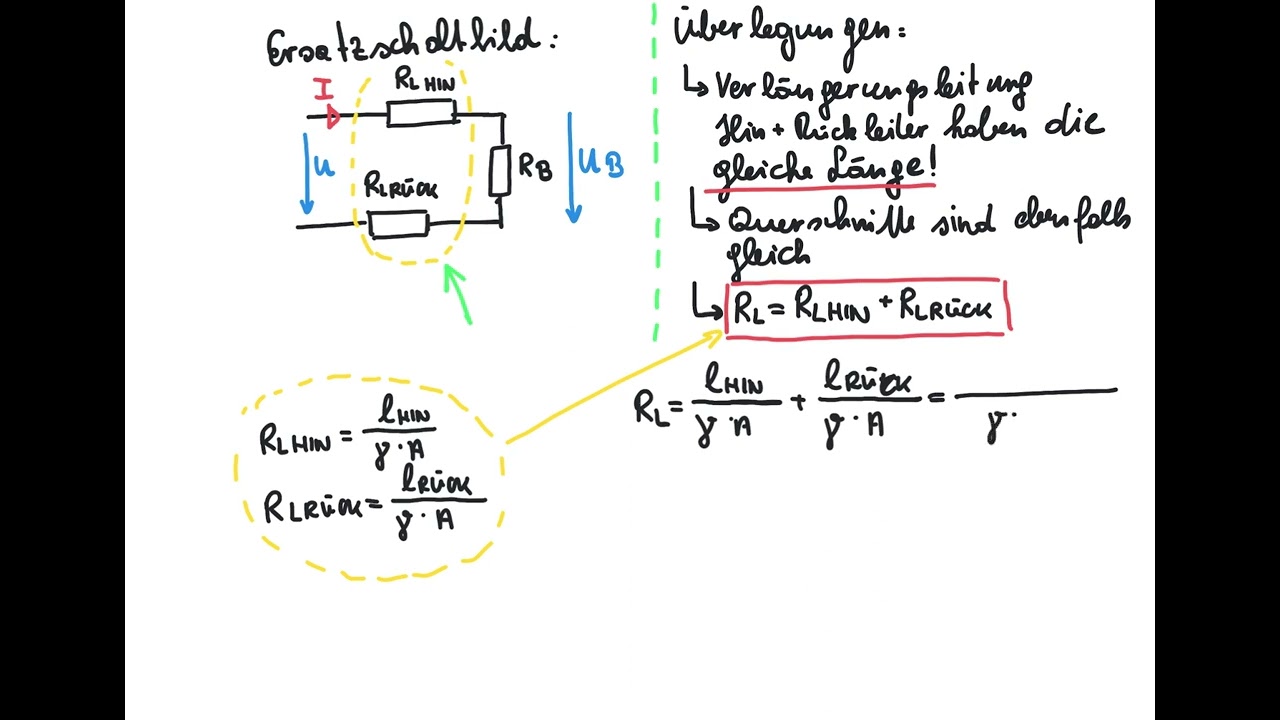 Ersatzschaltbild:
I
R_LHIN
U
R_B
U_B
R_LRÜCK
Überlegungen:
↳ Verlängerungsleitung
Hin + Rückleiter haben die
gleiche Länge!
↳ Querschnitte sind ebenfalls
gleich
↳ R_L = R_LHIN + R_LRÜCK
R_L = l_HIN / (γ · A) + l_RÜCK / (γ · A) = / γ ·
R_LHIN = l_HIN / (γ · A)
R_LRÜCK = l_RÜCK / (γ · A)